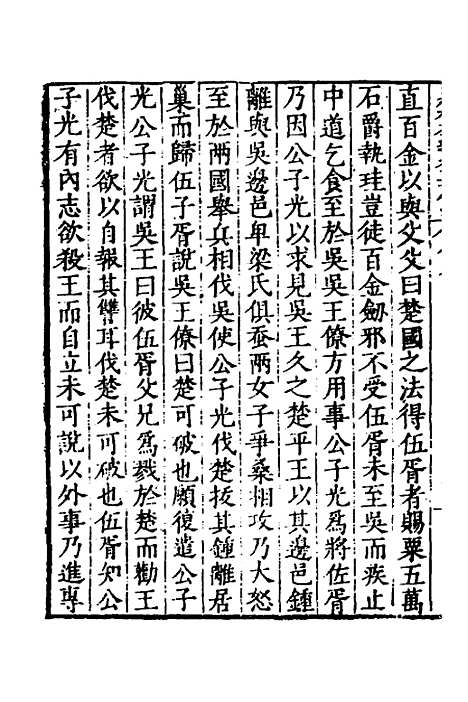 直百金以與父父曰楚國之法得伍胥者賜粟五萬
石爵執珪豈徒百金劒邪不受伍胥未至吳而疾止
中道乞食至於吳吳王僚方用事公子光爲將佐胥
乃因公子光以求見吳王久之楚平王以其邊邑鍾
離與吳邊邑卑梁氏俱蚕兩女子爭桑相攻乃大怒
至於兩國舉兵相伐吳使公子光伐楚拔其鍾離居
巢而歸伍子胥說吳王僚曰楚可破也願復遣公子
光公子光謂吳王曰彼伍胥父兄爲戮於楚而勸王
伐楚者欲以自報其讐耳伐楚未可破也伍胥知公
子光有內志欲殺王而自立未可說以外事乃進專